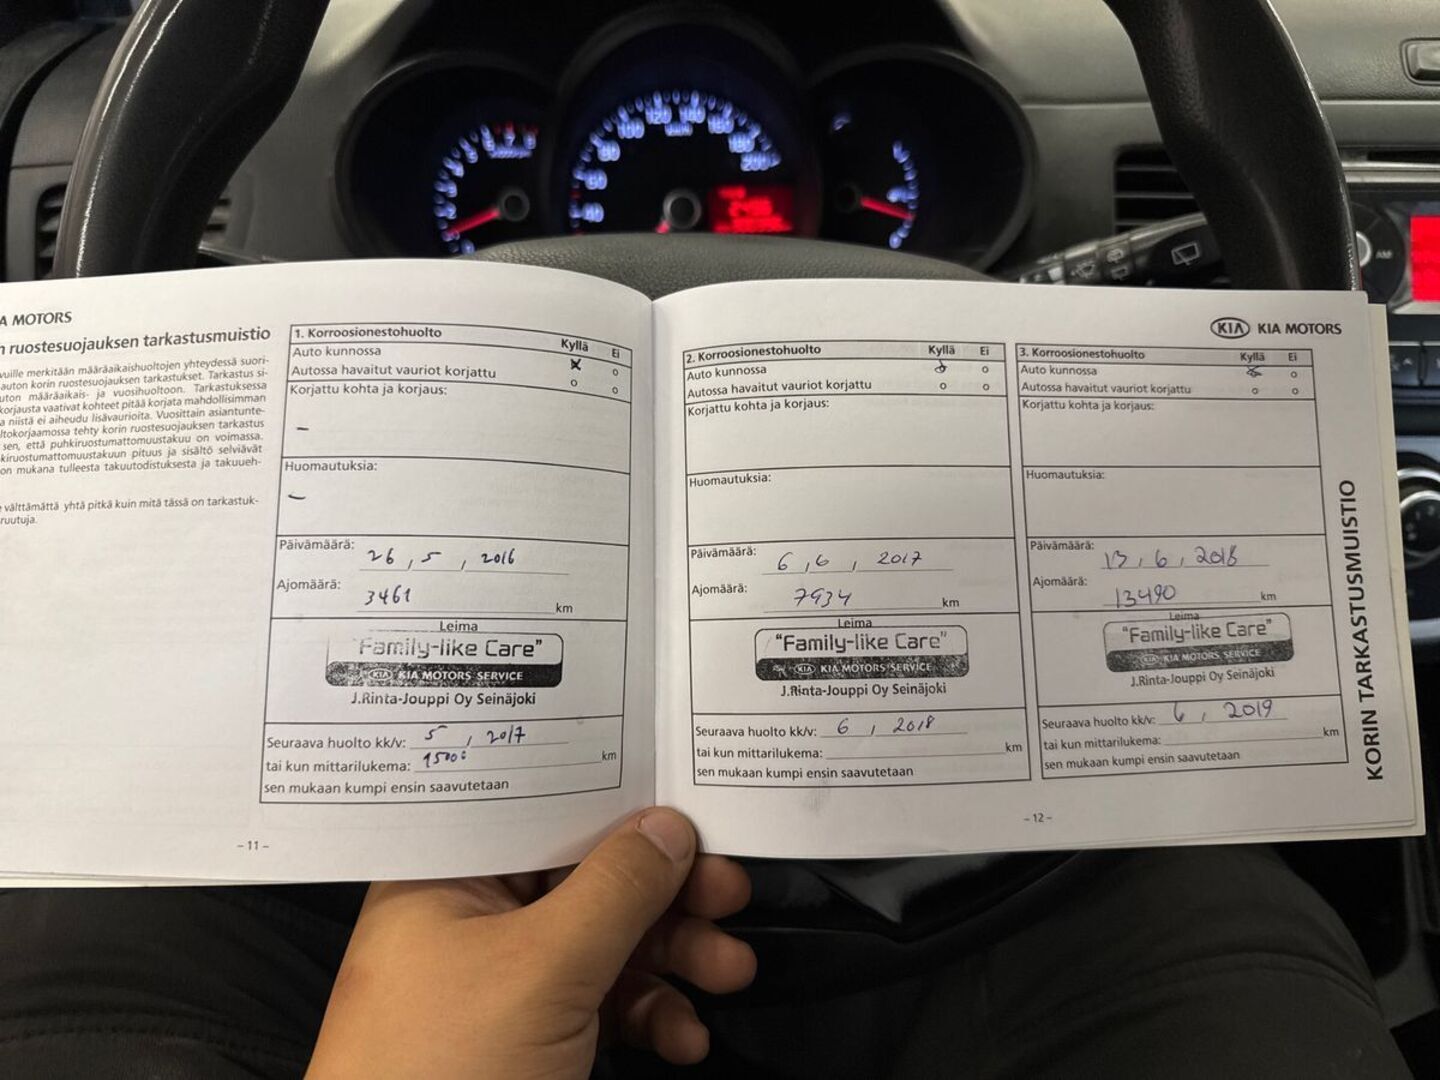 A MOTORS
n ruostesuojauksen tarkastusmuistio
vuille merkitään määräaikaishuoltojen yhteydessä suori-
auton korin ruostesuojauksen tarkastukset. Tarkastus si-
uton määräaikais- ja vuosihuoltoon. Tarkastuksessa
korjausta vaativat kohteet pitää korjata mahdollisimman
a niistä ei aiheudu lisävaurioita. Vuosittain asiantunte-
ltokorjaamossa tehty korin ruostesuojauksen tarkastus
sen, että puhkiruostumattomuustakuu on voimassa.
kiruostumattomuustakuun pituus ja sisältö selviävät
on mukana tulleesta takuutodistuksesta ja takuueh-
välttämättä yhtä pitkä kuin mitä tässä on tarkastuk-
ruutuja.
1. Korroosionestohuolto
Kyllä Ei
Auto kunnossa x o
Autossa havaitut vauriot korjattu o o
Korjattu kohta ja korjaus:
–
Huomautuksia:
–
Päivämäärä: 26 , 5 , 2016
Ajomäärä: 3461 km
Leima
"Family-like Care"
KIA KIA MOTORS SERVICE
J.Rinta-Jouppi Oy Seinäjoki
Seuraava huolto kk/v: 5 , 2017
tai kun mittarilukema: 15000 km
sen mukaan kumpi ensin saavutetaan
– 11 –
KIA KIA MOTORS
2. Korroosionestohuolto Kyllä Ei
Auto kunnossa x o
Autossa havaitut vauriot korjattu o o
Korjattu kohta ja korjaus:
Huomautuksia:
Päivämäärä: 6 , 6 , 2017
Ajomäärä: 7934 km
Leima
"Family-like Care"
KIA KIA MOTORS SERVICE
J.Rinta-Jouppi Oy Seinäjoki
Seuraava huolto kk/v: 6 , 2018
tai kun mittarilukema: km
sen mukaan kumpi ensin saavutetaan
3. Korroosionestohuolto Kyllä Ei
Auto kunnossa x o
Autossa havaitut vauriot korjattu o o
Korjattu kohta ja korjaus:
Huomautuksia:
Päivämäärä: 13 , 6 , 2018
Ajomäärä: 13490 km
Leima
"Family-like Care"
KIA KIA MOTORS SERVICE
J.Rinta-Jouppi Oy Seinäjoki
Seuraava huolto kk/v: 6 , 2019
tai kun mittarilukema: km
sen mukaan kumpi ensin saavutetaan
– 12 –
KORIN TARKASTUSMUISTIO
40
60
80
100
120
140
160
180
200
AM